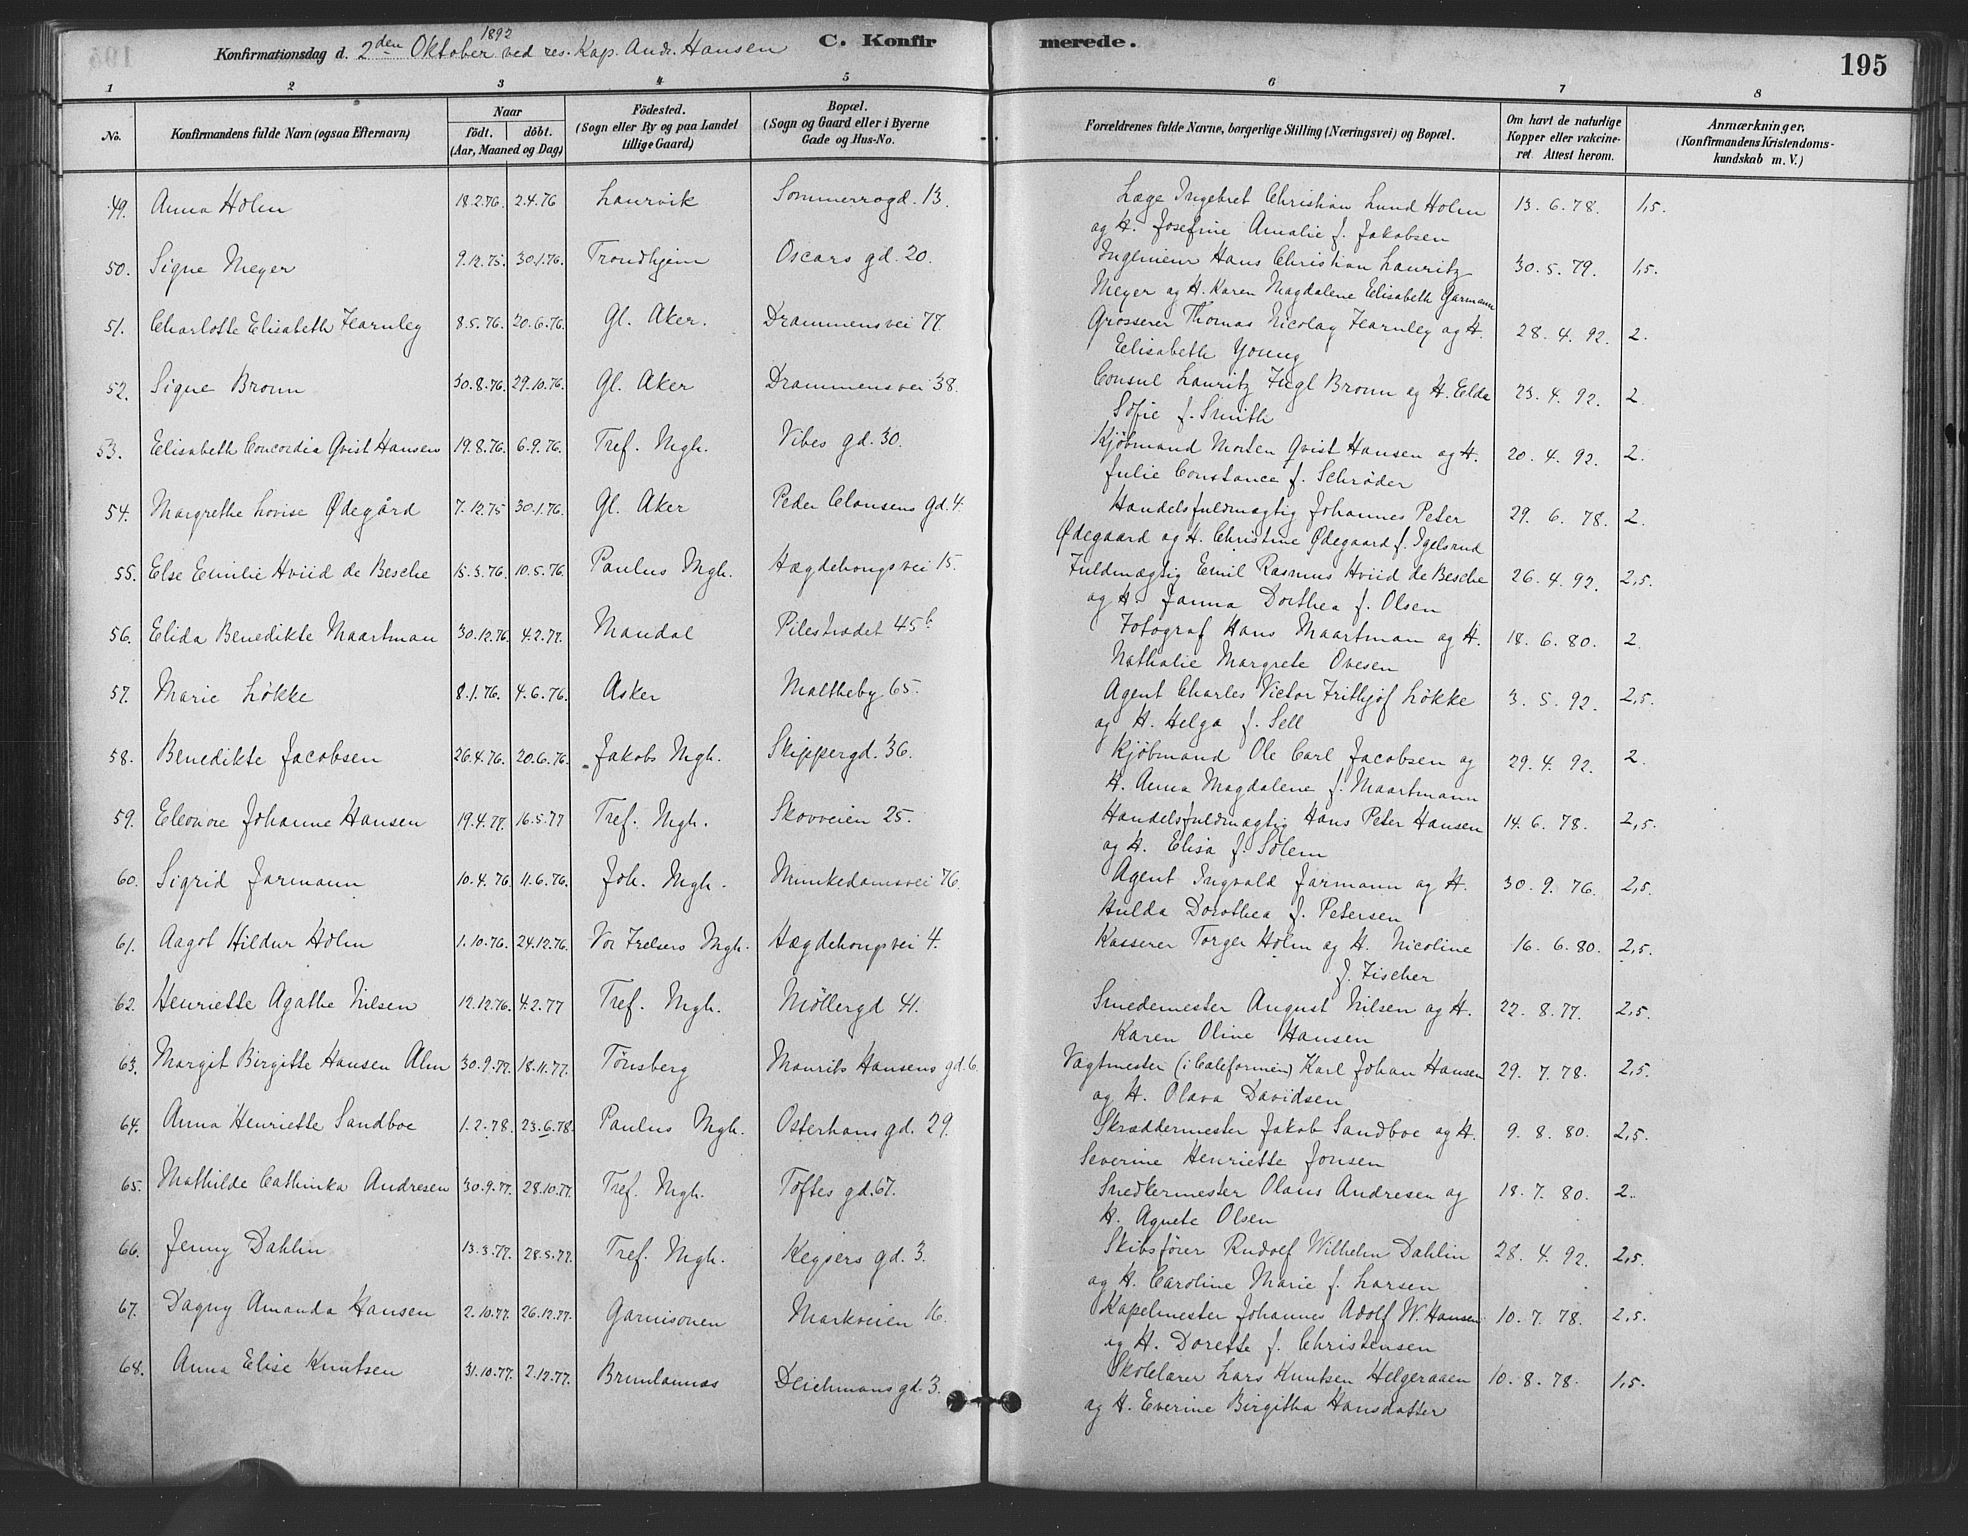 Konfirmationsdag d. 2den Oktober 1892 ved res. Kap. Andr. Hansen C. Konfirmerede. 195
1 2 3 4 5 6 7 8
No. Konfirmandens fulde Navn (ogsaa Efternavn) Naar födt. döbt. (Aar, Maaned og Dag) Födested. (Sogn eller By og paa Landet tillige Gaard) Bopæl. (Sogn og Gaard eller i Byerne Gade og Hus-No. Forældrenes fulde Navne, borgerlige Stilling (Næringsvei) og Bopæl. Om havt de naturlige Kopper eller vakcineret. Attest herom. Anmærkninger. (Konfirmandens Kristendomskundskab m. V.)
49. Anna Holm 18.2.76. 2.4.76 Laurvik Sommerrogd. 13. Læge Ingebret Christian Lund Holm 13. 6. 78. 1,5.
og H. Josefine Amalie f. Jakobsen
50. Signe Meyer 9.12.75. 30.1.76. Trondhjem Oscars gd. 20. Ingeniør Hans Christian Lauritz 30. 5. 79. 1,5.
Meyer og H. Karen Magdalene Elisabeth Garmann
51. Charlotte Elisabeth Fearnley 8.5.76. 20.6.76. Gl. Aker. Drammensvei 77. Grosserer Thomas Nicolay Fearnley og H. 28. 4. 92. 2.
Elisabeth Young
52. Signe Bronn 30.8.76. 29.10.76. Gl. Aker Drammensvei 38. Consul Lauritz Fugl Bronn og H. Elda 23. 4. 92. 2.
Sofie f. Smith
53. Elisabeth Concordia Qvist Hansen 19.8.76. 6.9.76. Tref. Mgh. Vibes gd. 30. Kjøbmand Morten Qvist Hansen og H. 20. 4. 92. 2.
Julie Constance f. Schrøder
54. Margrethe Lovise Ødegård 7.12.75 30.1.76. Gl. Aker Peder Clausens gd. 4. Handelsfuldmægtig Johannes Peter 29. 6. 78. 2.
Ødegaard og H. Christine Ødegaard f. Igelsrud
55. Else Emilie Hviid de Besche 15.3.76. 10.5.76. Paulus Mgh. Hægdehougsvei 15. Fuldmægtig Emil Rasmus Hviid de Besche 26. 4. 92. 2,5.
og H. Janna Dorthea f. Olsen
56. Elida Benedikte Maartman 30.12.76. 4.2.77. Mandal Pilestrædet 45b Fotograf Hans Maartman og H. 18. 6. 80. 2.
Nathalie Margrete Ovesen
57. Marie Løkke 8.1.76. 4.6.76. Asker Maltheby 65. Agent Charles Victor Frithjof Løkke 3. 5. 92. 2,5.
og H. Helga f. Sell
58. Benedikte Jacobsen 26.4.76. 20.6.76. Jakobs Mgh. Skippergd. 36. Kjøbmand Ole Carl Jacobsen og 29. 4. 92. 2.
H. Anna Magdalene f. Maartmann
59. Eleonore Johanne Hansen 19.4.77. 16.5.77 Tref. Mgh. Skovveien 25. Handelsfuldmægtig Hans Peter Hansen 14. 6. 78. 2,5.
og H. Elisa f. Solem
60. Sigrid Jarmann 10.4.76. 11.6.76. Joh. Mgh. Munkedamsvei 76. Agent Ingvald Jarmann og H. 30. 9. 76. 2,5.
Hulda Dorothea f. Petersen
61. Aagot Hildur Holm 1.10.76. 24.12.76. Vor Frelsers Mgh. Hægdehougsvei 4. Kasserer Torger Holm og H. Nicoline 16. 6. 80. 2,5.
f. Fischer
62. Henriette Agathe Nilsen 12.12.76. 4.2.77 Tref. Mgh. Møllergd 41. Smedemester August Nilsen og H. 22. 8. 77. 2,5.
Karen Oline Hansen
63. Margit Birgitte Hansen Alm 30.9.77. 18.11.77. Tønsberg Maurits Hansens gd. 6. Vagtmester (i Caleformien) Karl Johan Hansen 29. 7. 78. 2,5.
og H. Olava Davidsen
64. Anna Henriette Sandboe 1.2.78. 23.6.78. Paulus Mgh. Osterhausgd. 29. Skræddermester Jakob Sandboe og H. 9. 8. 80. 2,5.
Severine Henriette Jonsen
65. Mathilde Cathinka Andresen 30.9.77. 28.10.77. Tref. Mgh. Toftes gd. 67. Snedkermester Olaus Andresen og 18. 7. 80. 2.
H. Agnete Olsen
66. Jenny Dahlin 13.3.77. 28.5.77. Tref. Mgh. Keysers gd. 3. Skibsfører Rudolf Wilhelm Dahlin 28. 4. 92. 2,5.
og H. Caroline Marie f. Larsen
67. Dagny Amanda Hansen 2.10.77. 26.12.77. Garnisonen Markveien 16. Kapelmester Johannes Adolf W. Hansen 10. 7. 78. 2,5.
og H. Dorette f. Christensen
68. Anna Elise Knutsen 31.10.77. 2.12.77. Brunlannæs Deichmansgd. 3. Skolelærer Lars Knutsen Helgeraaen 10. 8. 78. 1,5.
og H. Everine Birgitha Hansdatter